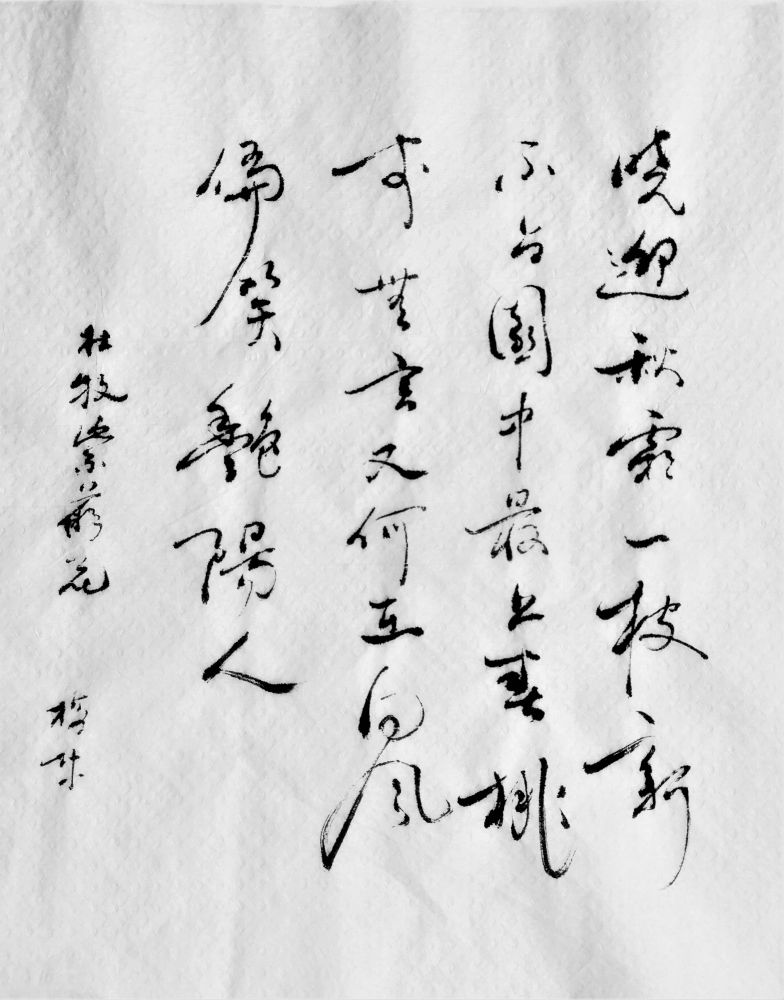 曉迎秋露一枝新
不占園中最上春桃
李無言又何在向風
偏笑艷陽人
杜牧紫薇花